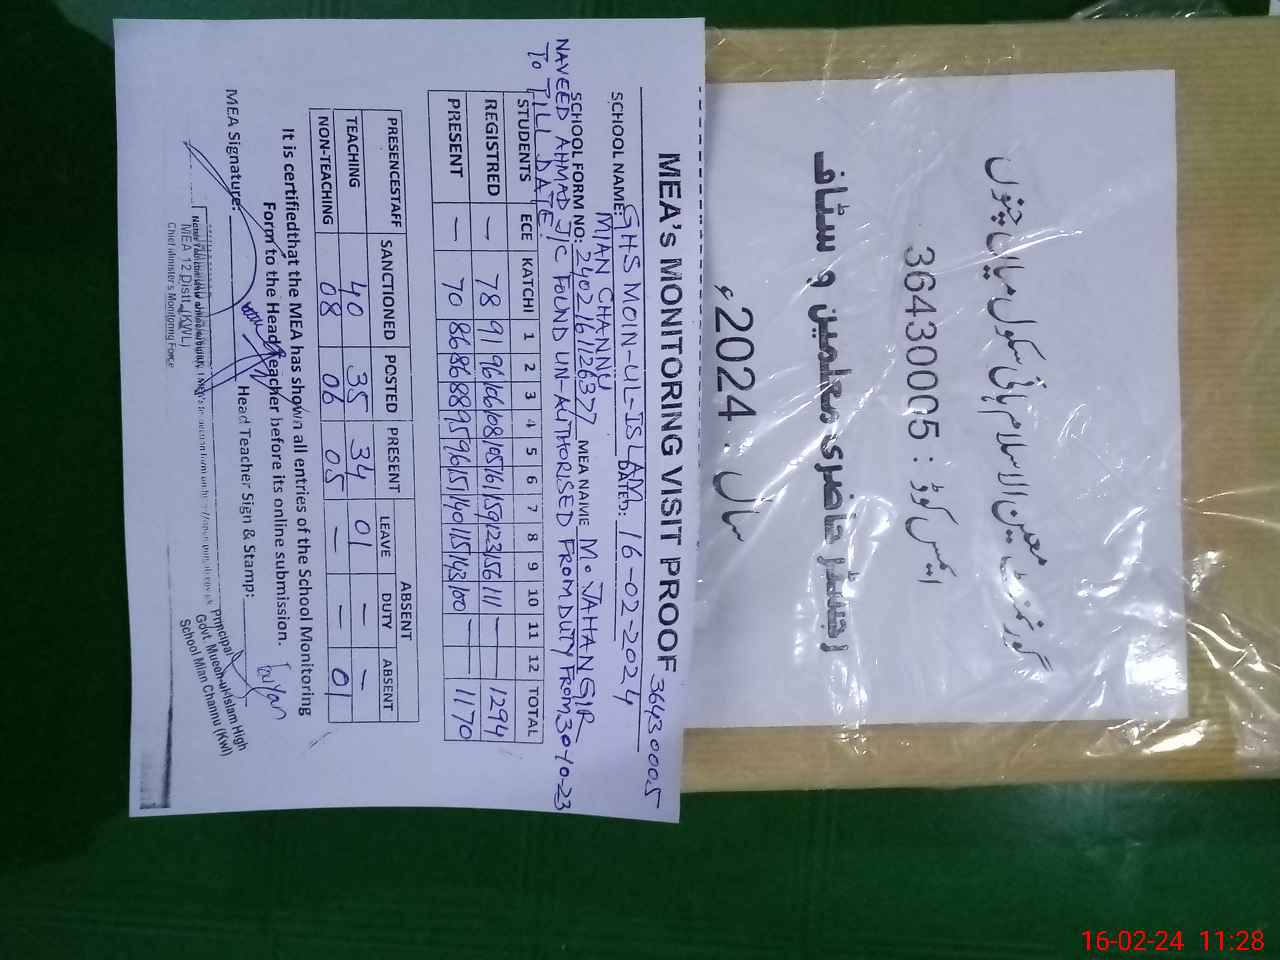 MEA's MONITORING VISIT PROOF 36430005
SCHOOL NAME: GHS MOIN-UL-ISLAM DATED: 16-02-2024
MIAN CHANNU
SCHOOL FORM NO: 2402161126377 MEA NAME M. JAHANGIR
NAVEED AHMAD J/C FOUND UN-AUTHORISED FROM DUTY FROM 30-10-23
To TILL DATE.
STUDENTS ECE KATCHI 1 2 3 4 5 6 7 8 9 10 11 12 TOTAL
REGISTRED — 78 91 96 106 108 105 161 159 123 156 111 — — 1294
PRESENT — 70 86 86 88 95 96 151 140 115 143 100 — — 1170
PRESENCESTAFF SANCTIONED POSTED PRESENT ABSENT
LEAVE DUTY ABSENT
TEACHING 40 35 34 01 — —
NON-TEACHING 08 06 05 — — 01
It is certifiedthat the MEA has shown all entries of the School Monitoring
Form to the Head Teacher before its online submission.
MEA Signature: Head Teacher Sign & Stamp:
MEA 12 Distt. (KWL)
Chief Minister's Monitoring Force
Principal
Govt. Mueen-ul-Islam High
School Mian Channu (Kwl)
گورنمنٹ معین الاسلام ہائی سکول میاں چنوں
ایمس کوڈ : 36430005
رجسٹر حاضری معلمین و سٹاف
سال . 2024ء
16-02-24 11:28